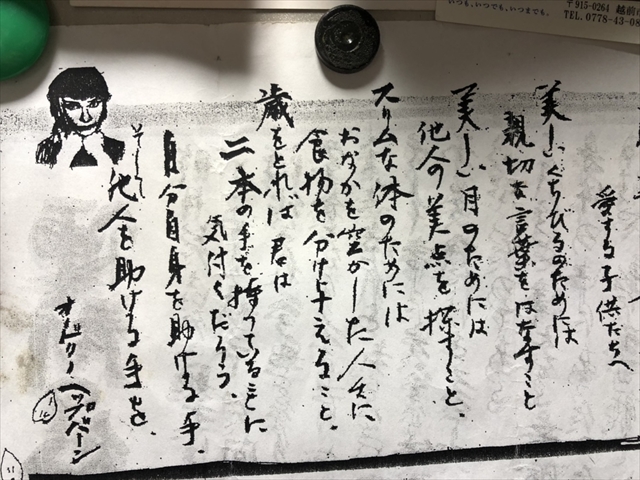 いつも、いつでも、いつまでも。
〒915-0264 越前
TEL.0778-43-08
愛する子供たちへ
美しいくちびるのためには
親切な言葉をはなすこと
美しい目のためには
他人の美点を探すこと、
スリムな体のためには
おなかを空かした人々に
食物を分け与えること、
歳をとれば君は
二本の手を持っていることに
気付くだろう、
自分自身を助ける手、
そして他人を助ける手を、
オードリー ヘップバーン